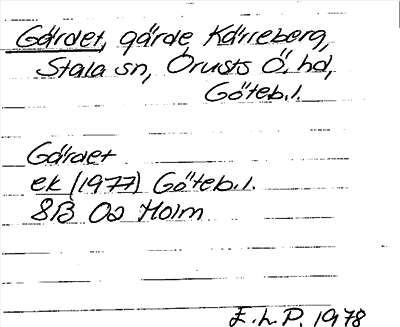 Gärdet, gärde, Kärreberg,
Stala sn, Orusts Ö. hd,
Göteb.l.
Gärdet
ek (1977) Göteb.l.
8B 0a Holm
E.L.P. 1978